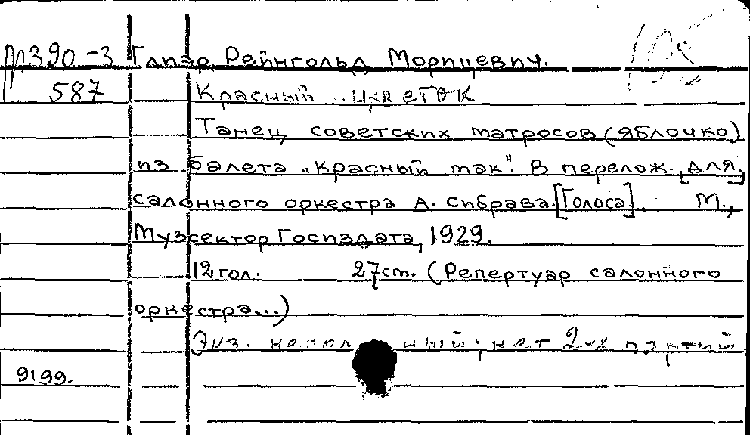 П390-3 Глиэр Рейнгольд Морицевич.
587 Красный цветок
Танец советских матросов (яблочко)
из балета „красный мак". В перелож. для
салонного оркестра А. Сибрава. [Голоса]. М.,
Музсектор Госиздата, 1929.
12 гол. 27 ст. (Репертуар салонного
оркестра...)
Экз. неполный: нет 2-х партий
9199.